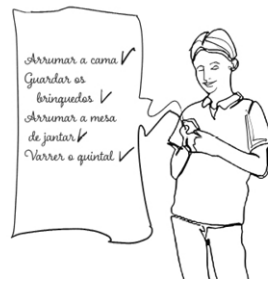 Arrumar a cama ✓
Guardar os
brinquedos ✓
Arrumar a mesa
de jantar ✓
Varrer o quintal ✓